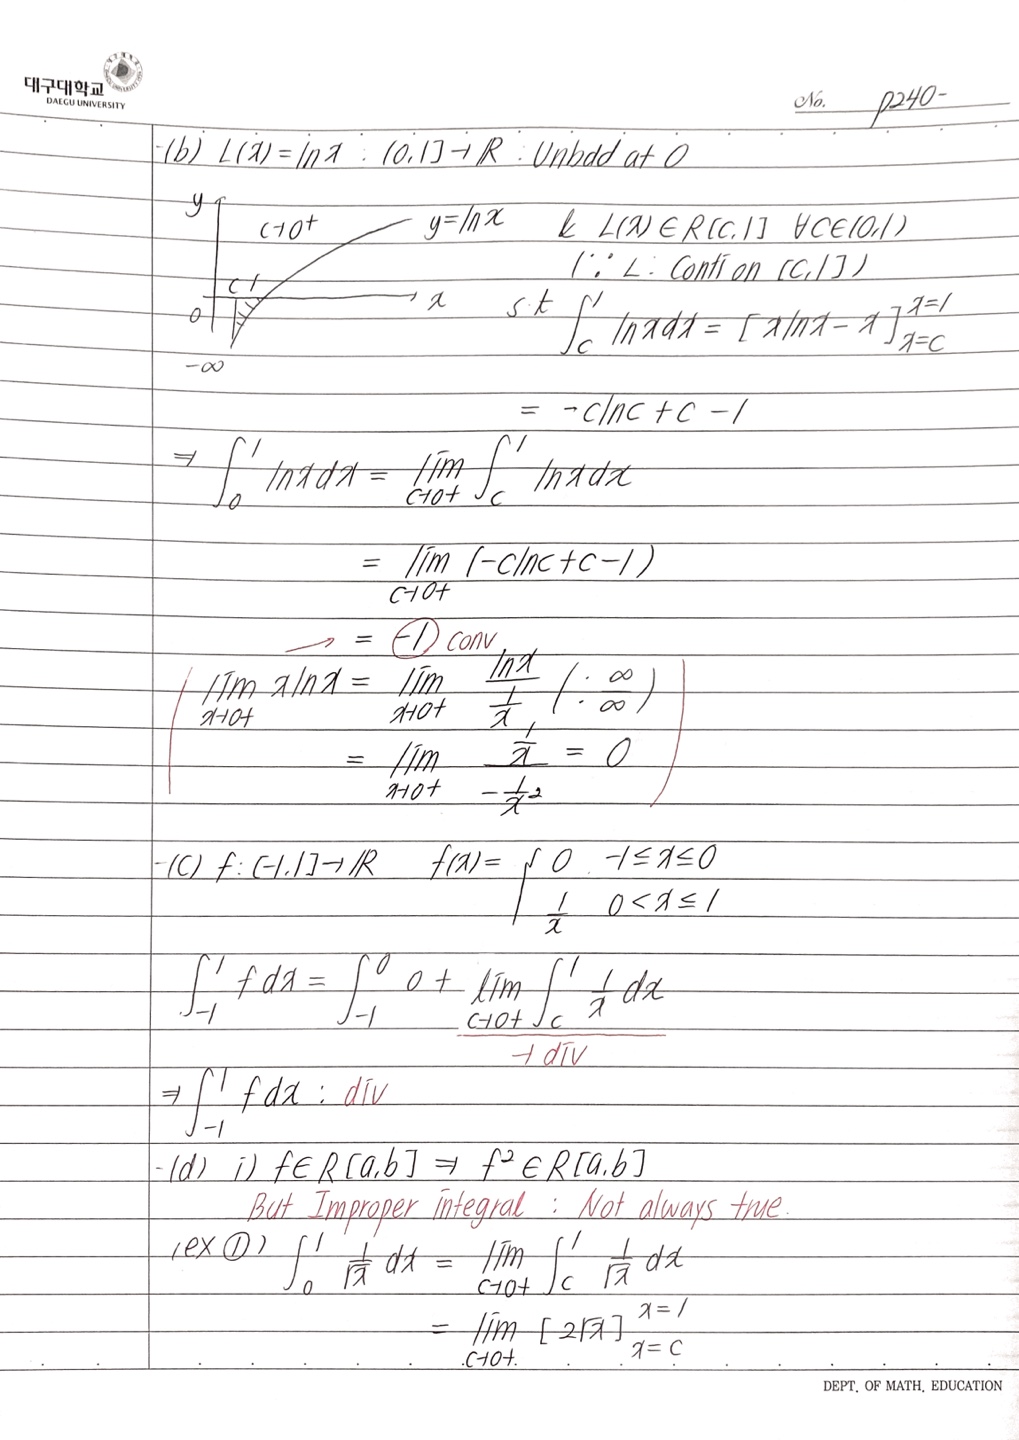 대구대학교
DAEGU UNIVERSITY
No. p240-
-(b) L(x)=lnx : (0,1]→ℝ : Unbdd at 0
y
c→0+
y=lnx
& L(x)∈R[c,1] ∀c∈(0,1)
(∵ L : Conti on [c,1])
c 1
0
x
-∞
s.t ∫_c^1 lnxdx = [xlnx-x]_{x=c}^{x=1}
= -clnc+c-1
⇒ ∫_0^1 lnxdx = lim_{c→0+} ∫_c^1 lnxdx
= lim_{c→0+} (-clnc+c-1)
→ = -1 conv
( lim_{x→0+} xlnx = lim_{x→0+} lnx/(1/x) (∵ ∞/∞)
= lim_{x→0+} (1/x)/(-1/x²) = 0 )
-(c) f:[-1,1]→ℝ f(x)= { 0 -1≤x≤0
1/x 0<x≤1
∫_{-1}^1 fdx = ∫_{-1}^0 0 + lim_{c→0+} ∫_c^1 1/x dx
→ div
⇒ ∫_{-1}^1 fdx : div
-(d) i) f∈R[a,b] ⇒ f²∈R[a,b]
But Improper integral : Not always true.
(ex①) ∫_0^1 1/√x dx = lim_{c→0+} ∫_c^1 1/√x dx
= lim_{c→0+} [2√x]_{x=c}^{x=1}
DEPT. OF MATH. EDUCATION